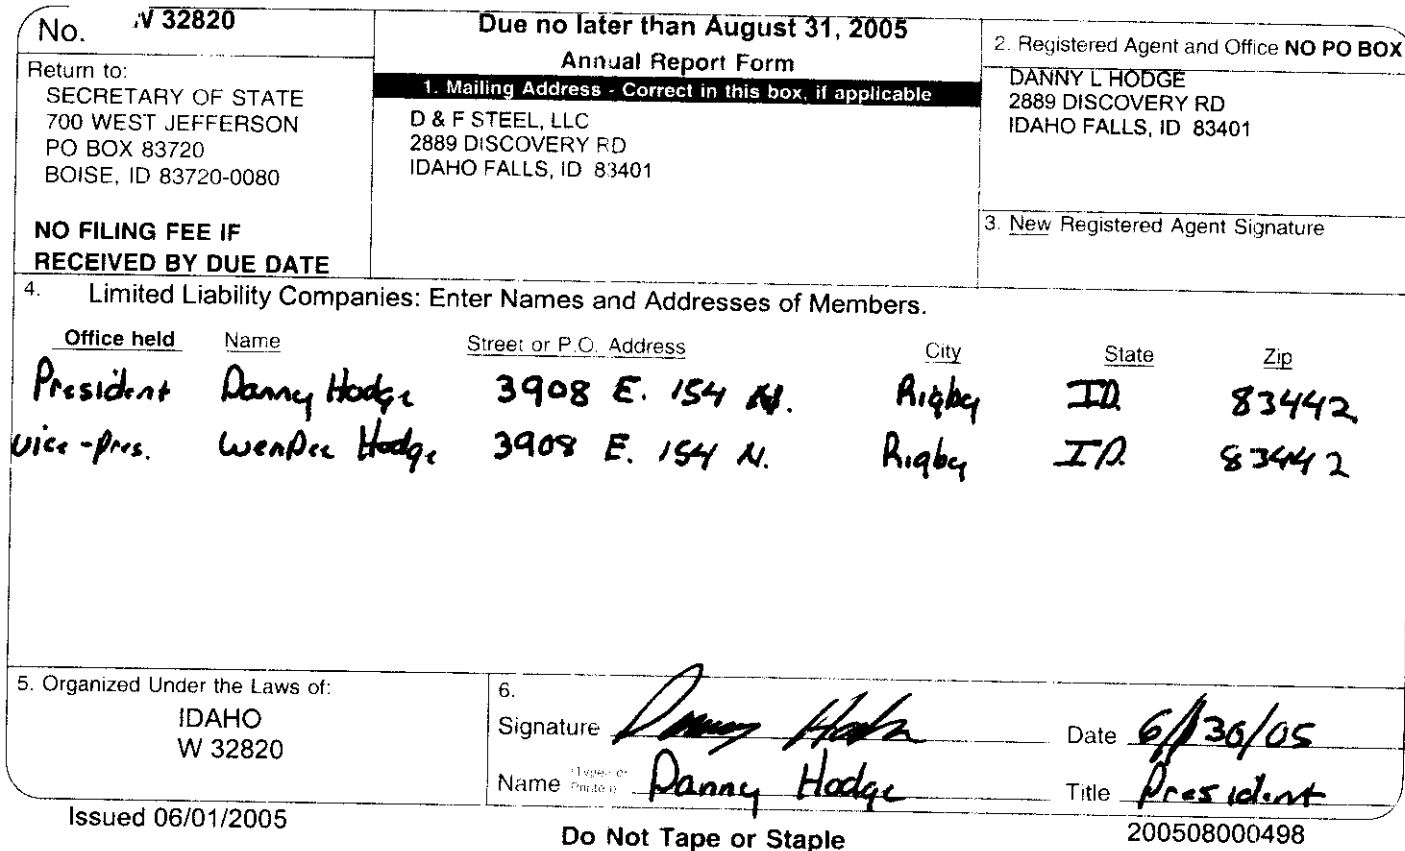 No. W 32820
Return to:
SECRETARY OF STATE
700 WEST JEFFERSON
PO BOX 83720
BOISE, ID 83720-0080
NO FILING FEE IF
RECEIVED BY DUE DATE
Due no later than August 31, 2005
Annual Report Form
1. Mailing Address - Correct in this box, if applicable
D & F STEEL, LLC
2889 DISCOVERY RD
IDAHO FALLS, ID 83401
2. Registered Agent and Office NO PO BOX
DANNY L HODGE
2889 DISCOVERY RD
IDAHO FALLS, ID 83401
3. New Registered Agent Signature
4. Limited Liability Companies: Enter Names and Addresses of Members.
Office held Name Street or P.O. Address City State Zip
President Danny Hodge 3908 E. 154 N. Rigby ID. 83442
vice-pres. WenDee Hodge 3908 E. 154 N. Rigby ID. 83442
5. Organized Under the Laws of:
IDAHO
W 32820
6.
Signature Danny Hodge Date 6/30/05
Name (Typed or Printed) Danny Hodge Title President
Issued 06/01/2005
Do Not Tape or Staple
200508000498